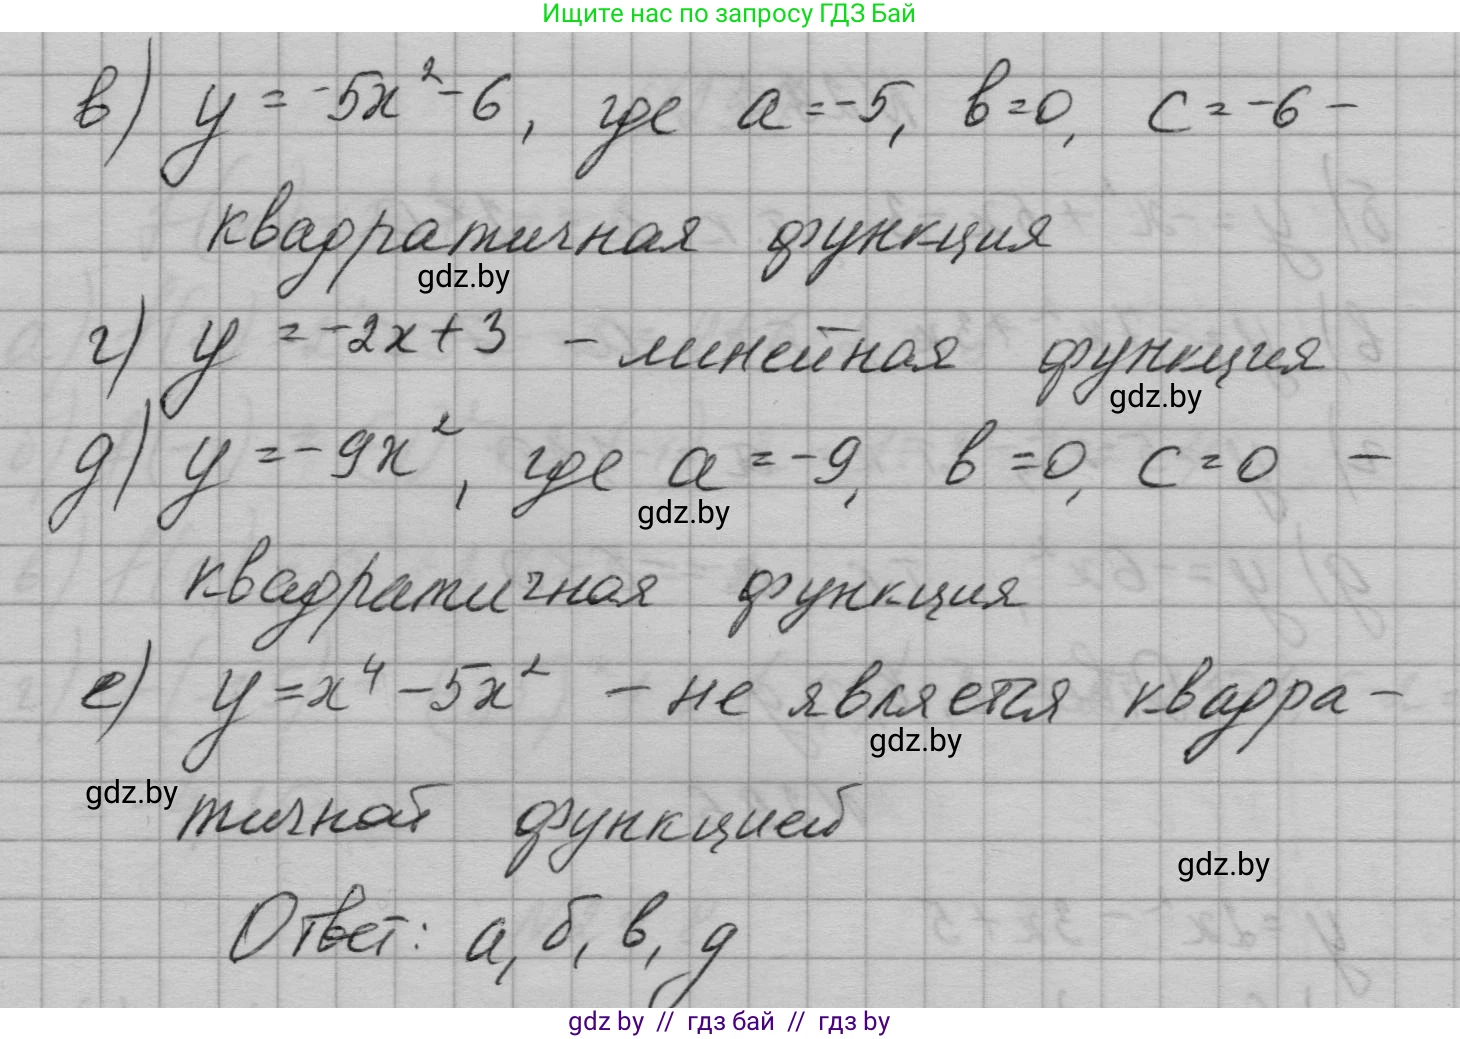 Ищите нас по запросу ГДЗ Бай
в) y = -5x² - 6, где a = -5, в = 0, c = -6 -
квадратичная функция
gdz.by
г) y = -2x + 3 - линейная функция
gdz.by
д) y = -9x², где a = -9, в = 0, c = 0 -
gdz.by
квадратичная функция
е) y = x⁴ - 5x² - не является квадра-
gdz.by
gdz.by
тичной функцией
gdz.by
Ответ: а, б, в, д
gdz by // гдз бай // гдз by